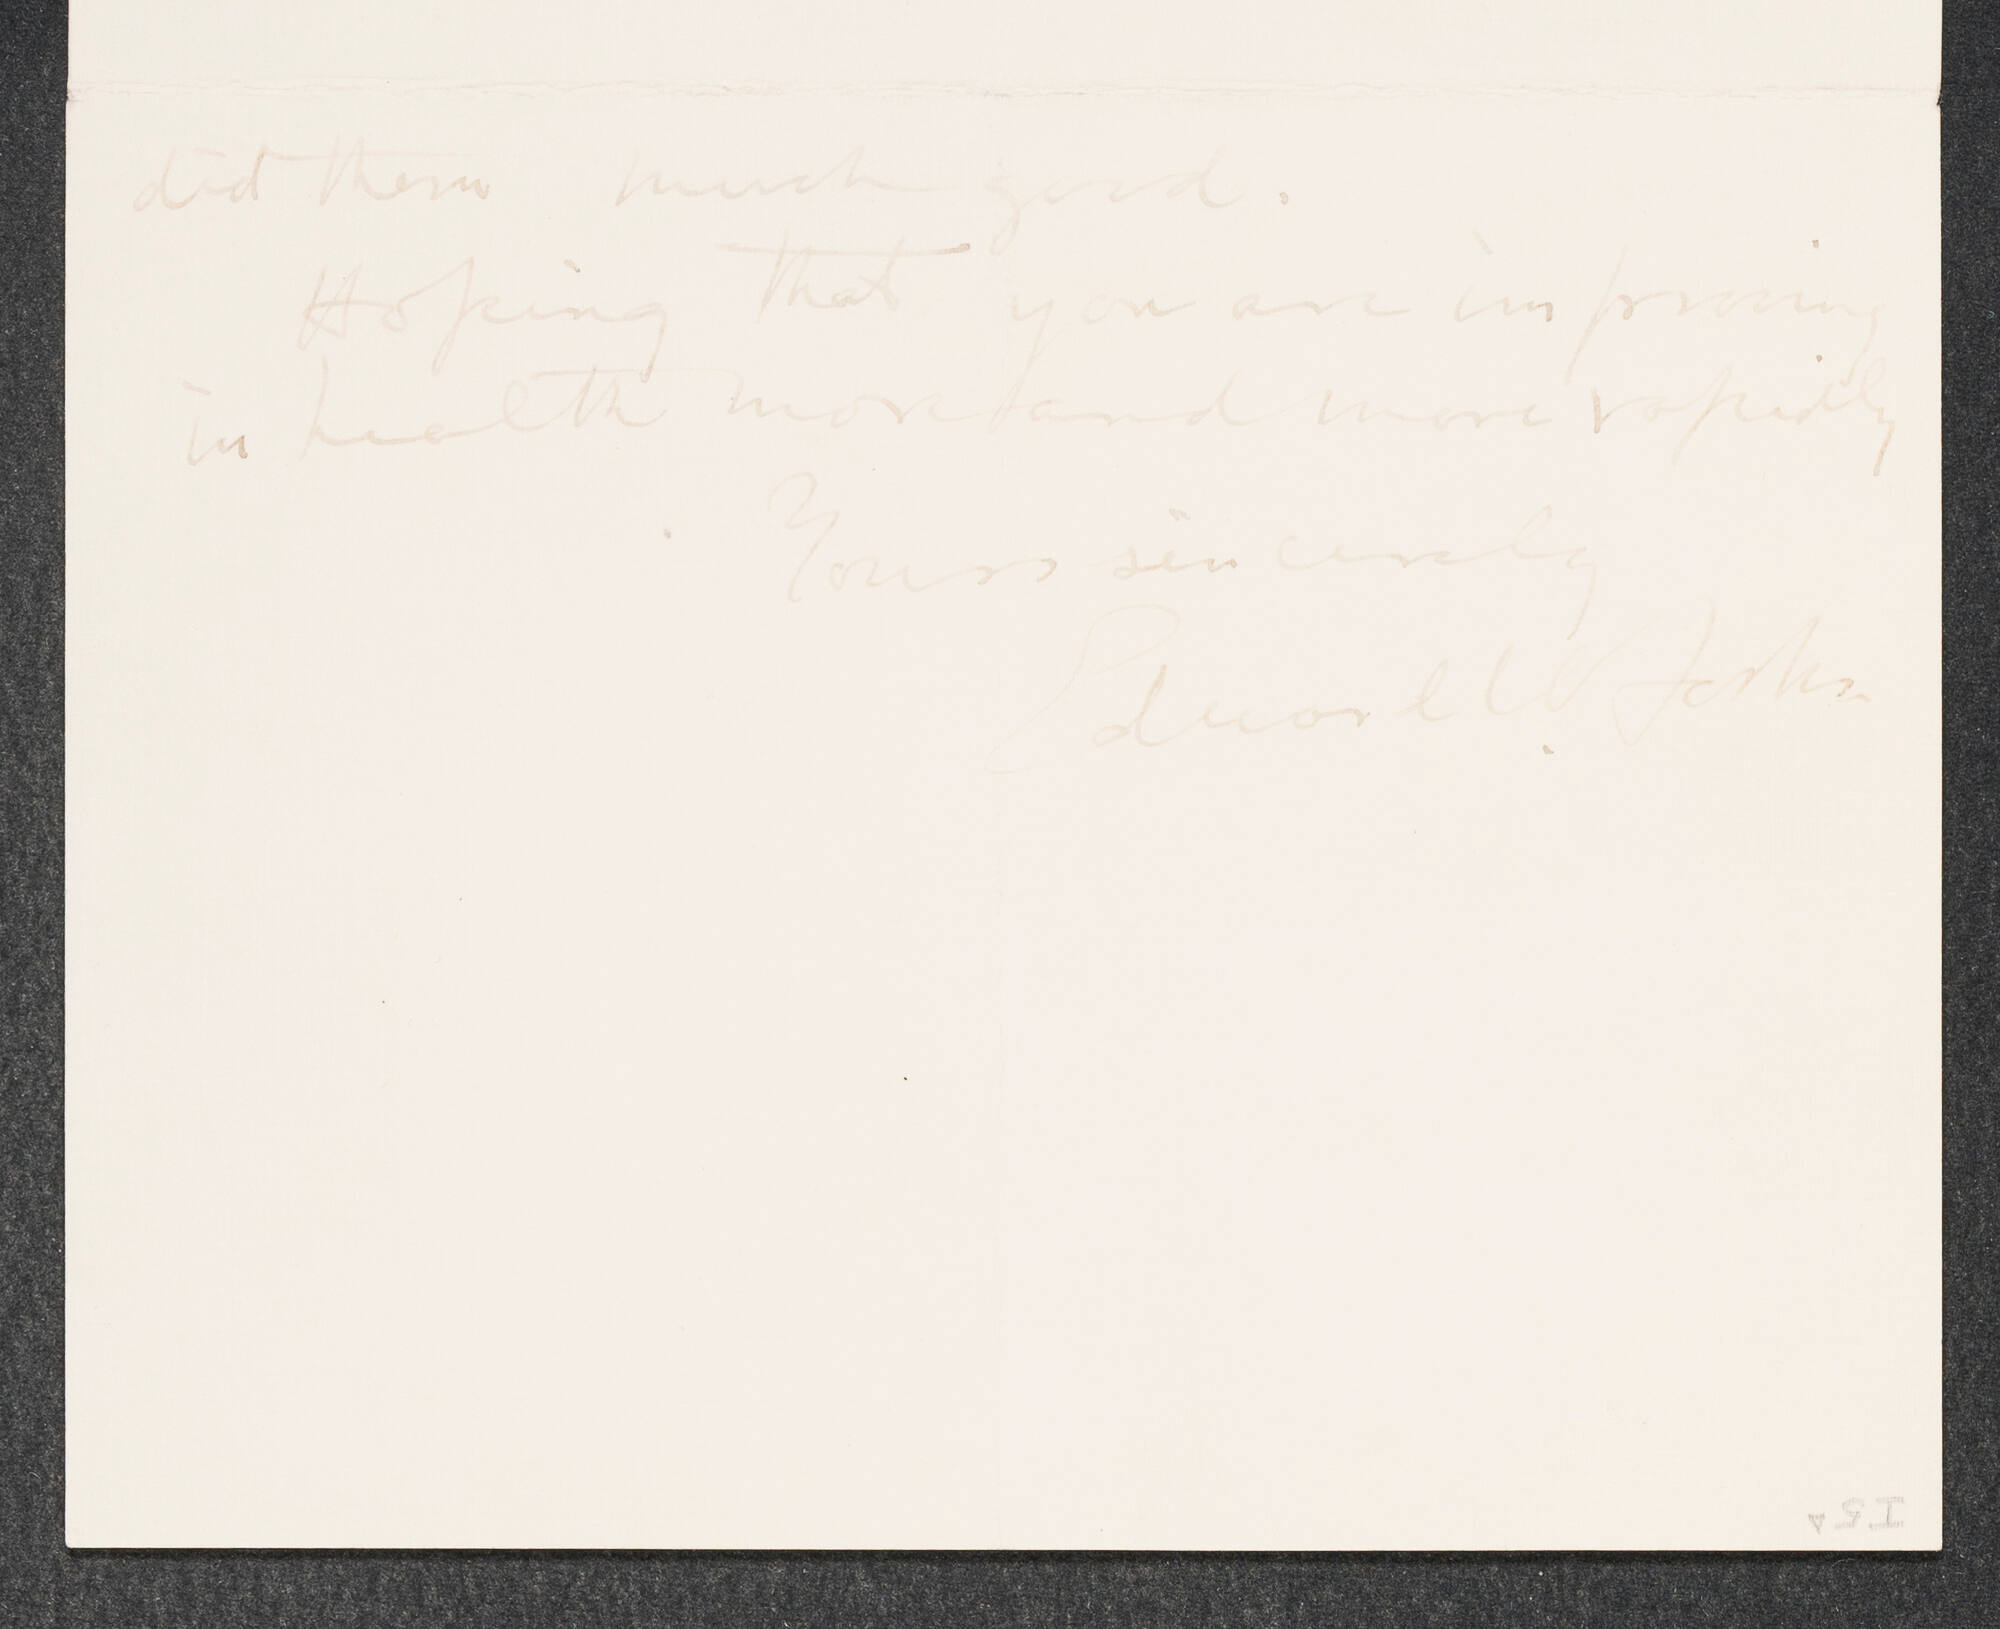 did them much good.
Hoping that you are improving
in health more and more rapidly
Yours sincerely
Edward